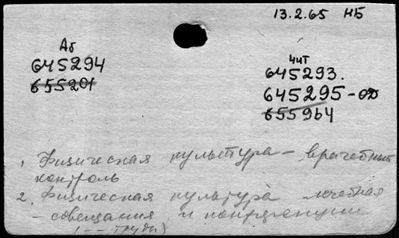 13.2.65 НБ
Аб
645294
655201
чит
645293.
645295-оф
655964
1. Физическая культура - врачебный
контроль
2. Физическая культура лечебная
- совещания и конференции
(-- труды)